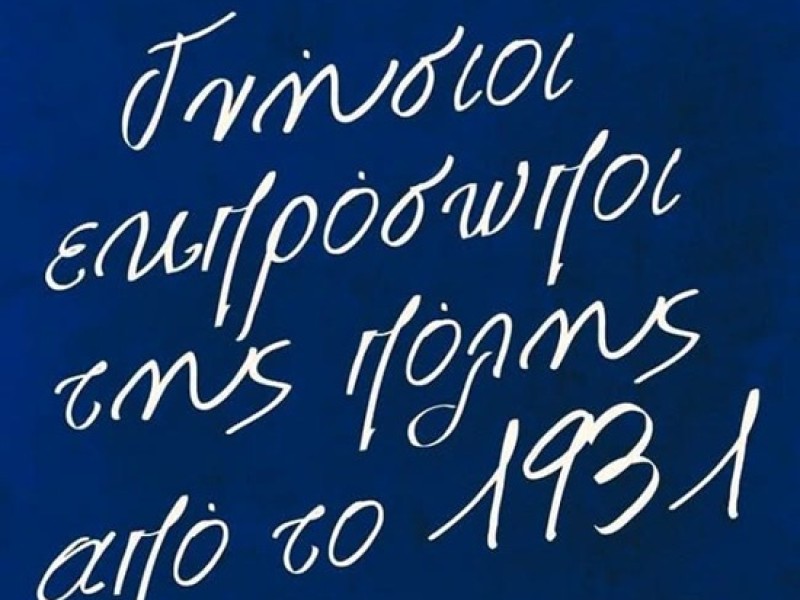 Γνήσιοι
εκπρόσωποι
της πόλης
από το 1931